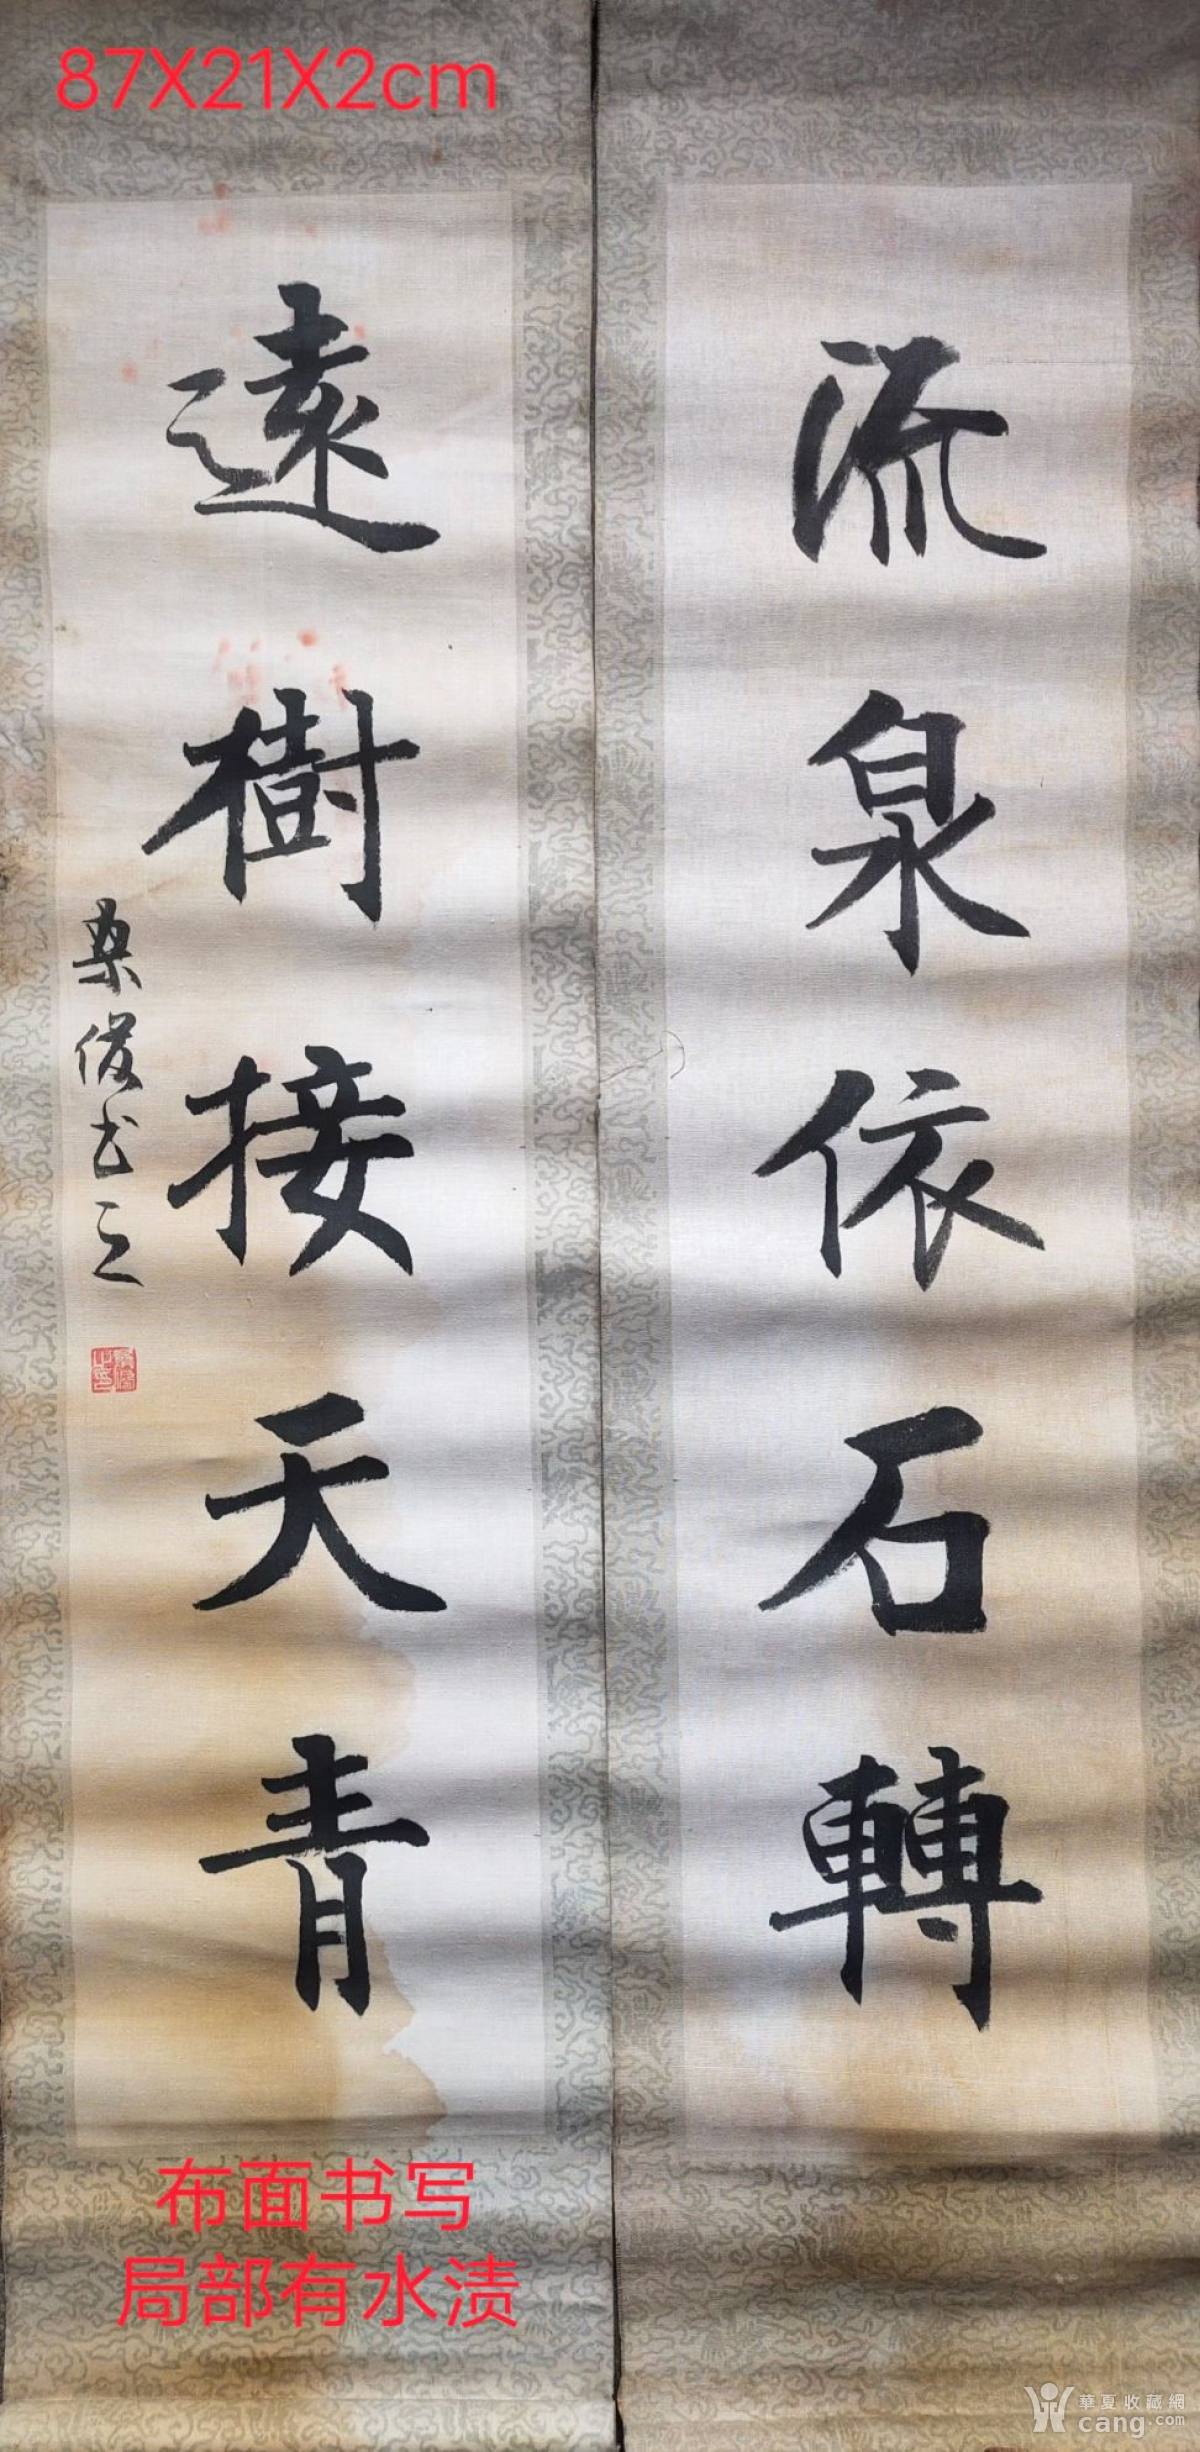 87X21X2cm
流泉依石轉
遠樹接天青
桑俊書之
布面书写
局部有水渍
華夏收藏網
cang.com